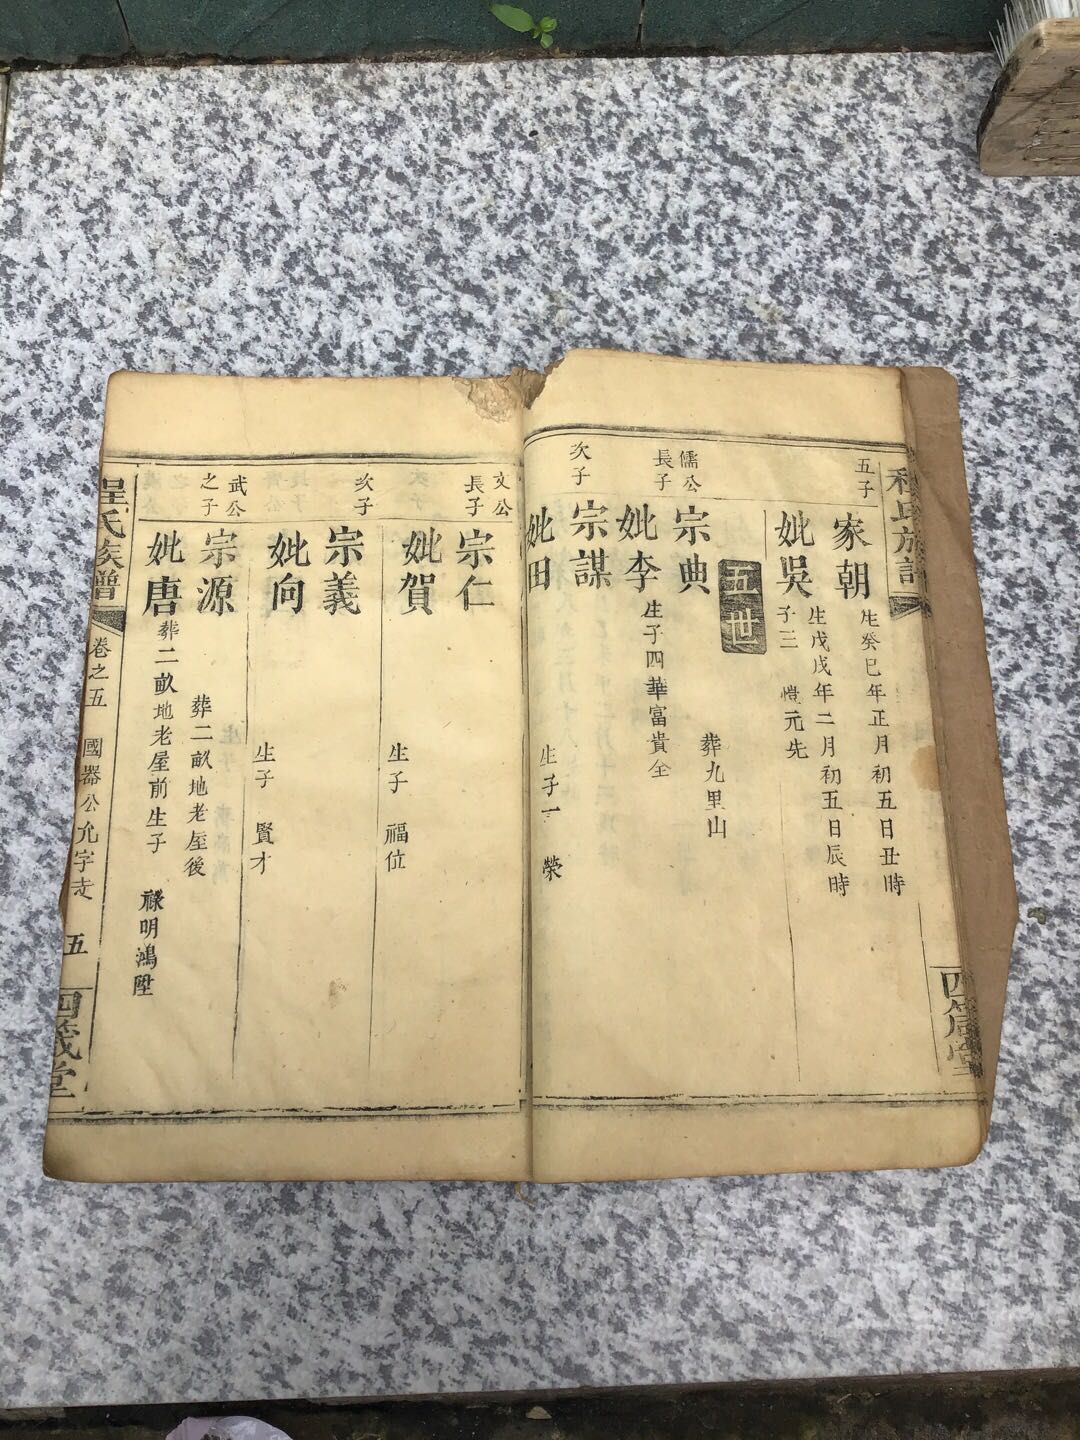 程氏族譜
四箴堂
五子
家朝
生癸巳年正月初五日丑時
妣吳
生戊戌年二月初五日辰時
子三
愷元先
五世
儒公
長子
宗典
葬九里山
妣李
生子四華富貴全
次子
宗謀
妣田
生子一
榮
文公
長子
宗仁
妣賀
生子
福位
次子
宗義
妣向
生子
賢才
武公
之子
宗源
葬二畝地老屋後
妣唐
葬二畝地老屋前生子
祿明鴻陞
程氏族譜
卷之五
國器公允字
五
四箴堂